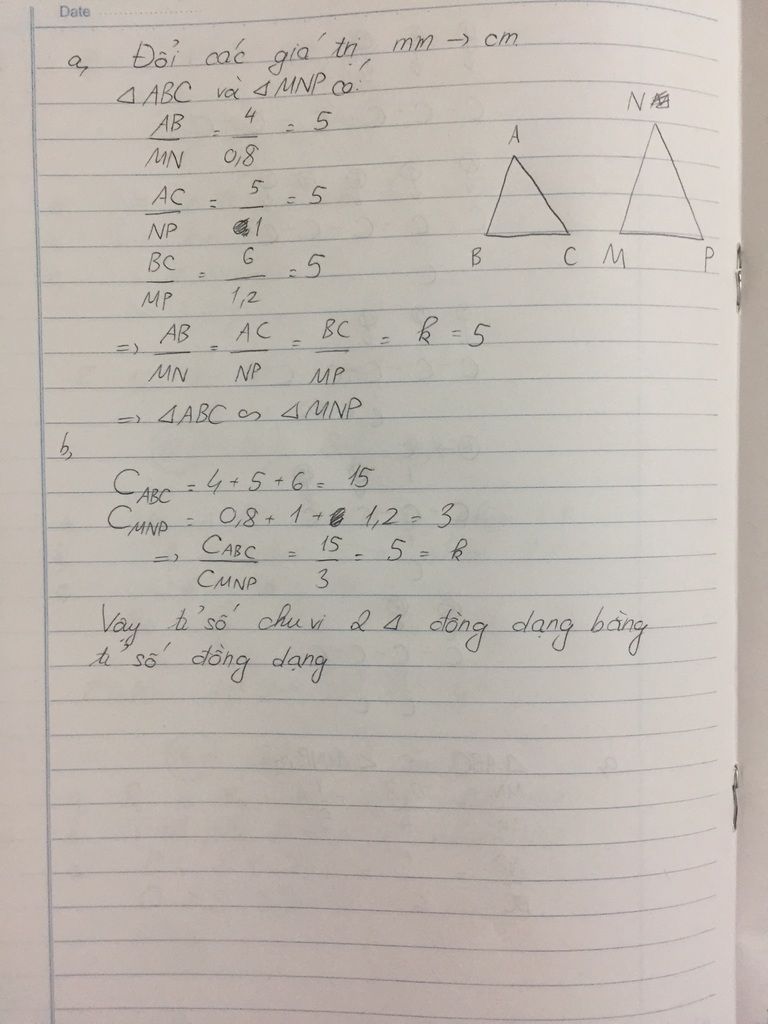 Date
a, Đổi các giá trị mm → cm
△ABC và △MNP có:
AB/MN = 4/0,8 = 5
AC/NP = 5/1 = 5
BC/MP = 6/1,2 = 5
=> AB/MN = AC/NP = BC/MP = k = 5
=> △ABC ∽ △MNP
A
B C
N
M P
b,
C_ABC = 4 + 5 + 6 = 15
C_MNP = 0,8 + 1 + 1,2 = 3
=> C_ABC/C_MNP = 15/3 = 5 = k
Vậy tỉ số chu vi 2 △ đồng dạng bằng
tỉ số đồng dạng